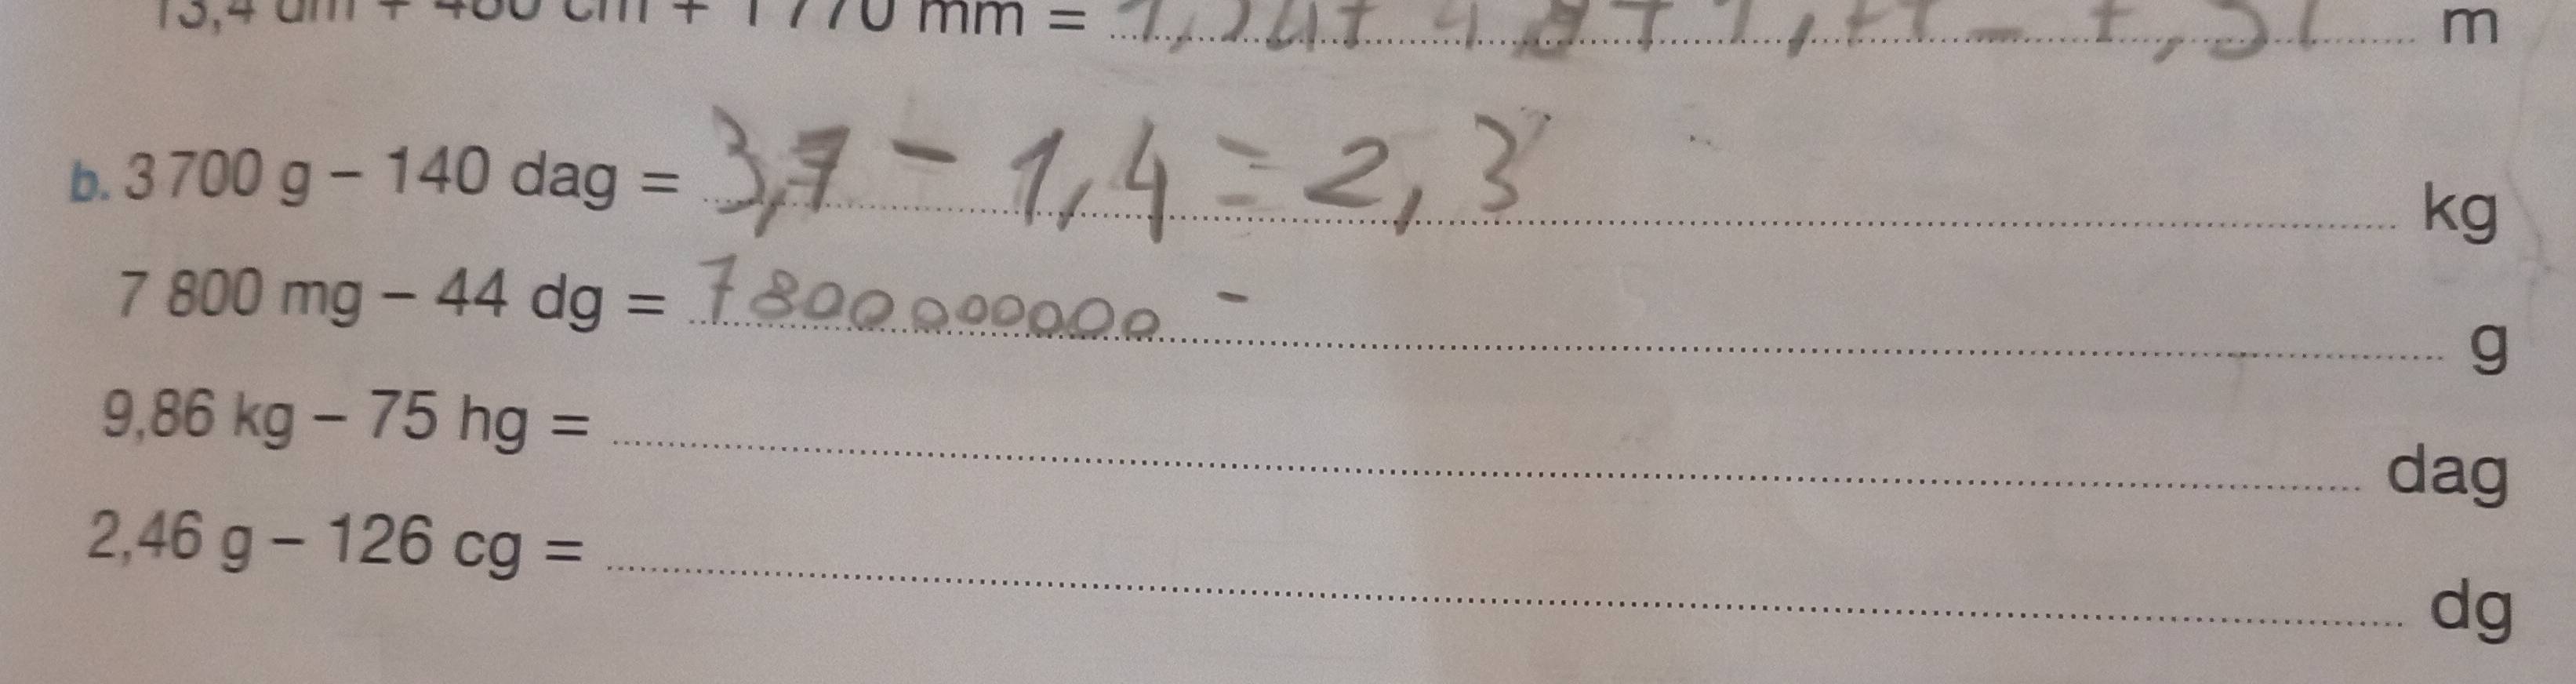 13,4 dm + 480 cm + 1 770 mm = 1,34 + 4,8 + 1,77 = 7,91 m
b. 3 700 g – 140 dag = 3,7 - 1,4 = 2,3 kg
7 800 mg – 44 dg = 7800000000 - g
9,86 kg – 75 hg = dag
2,46 g – 126 cg = dg